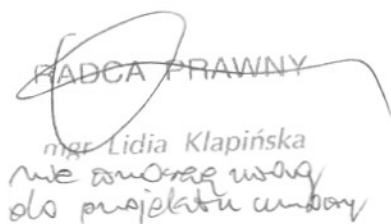 RADCA PRAWNY
mgr Lidia Klapińska
nie wnoszę uwag
do projektu umowy